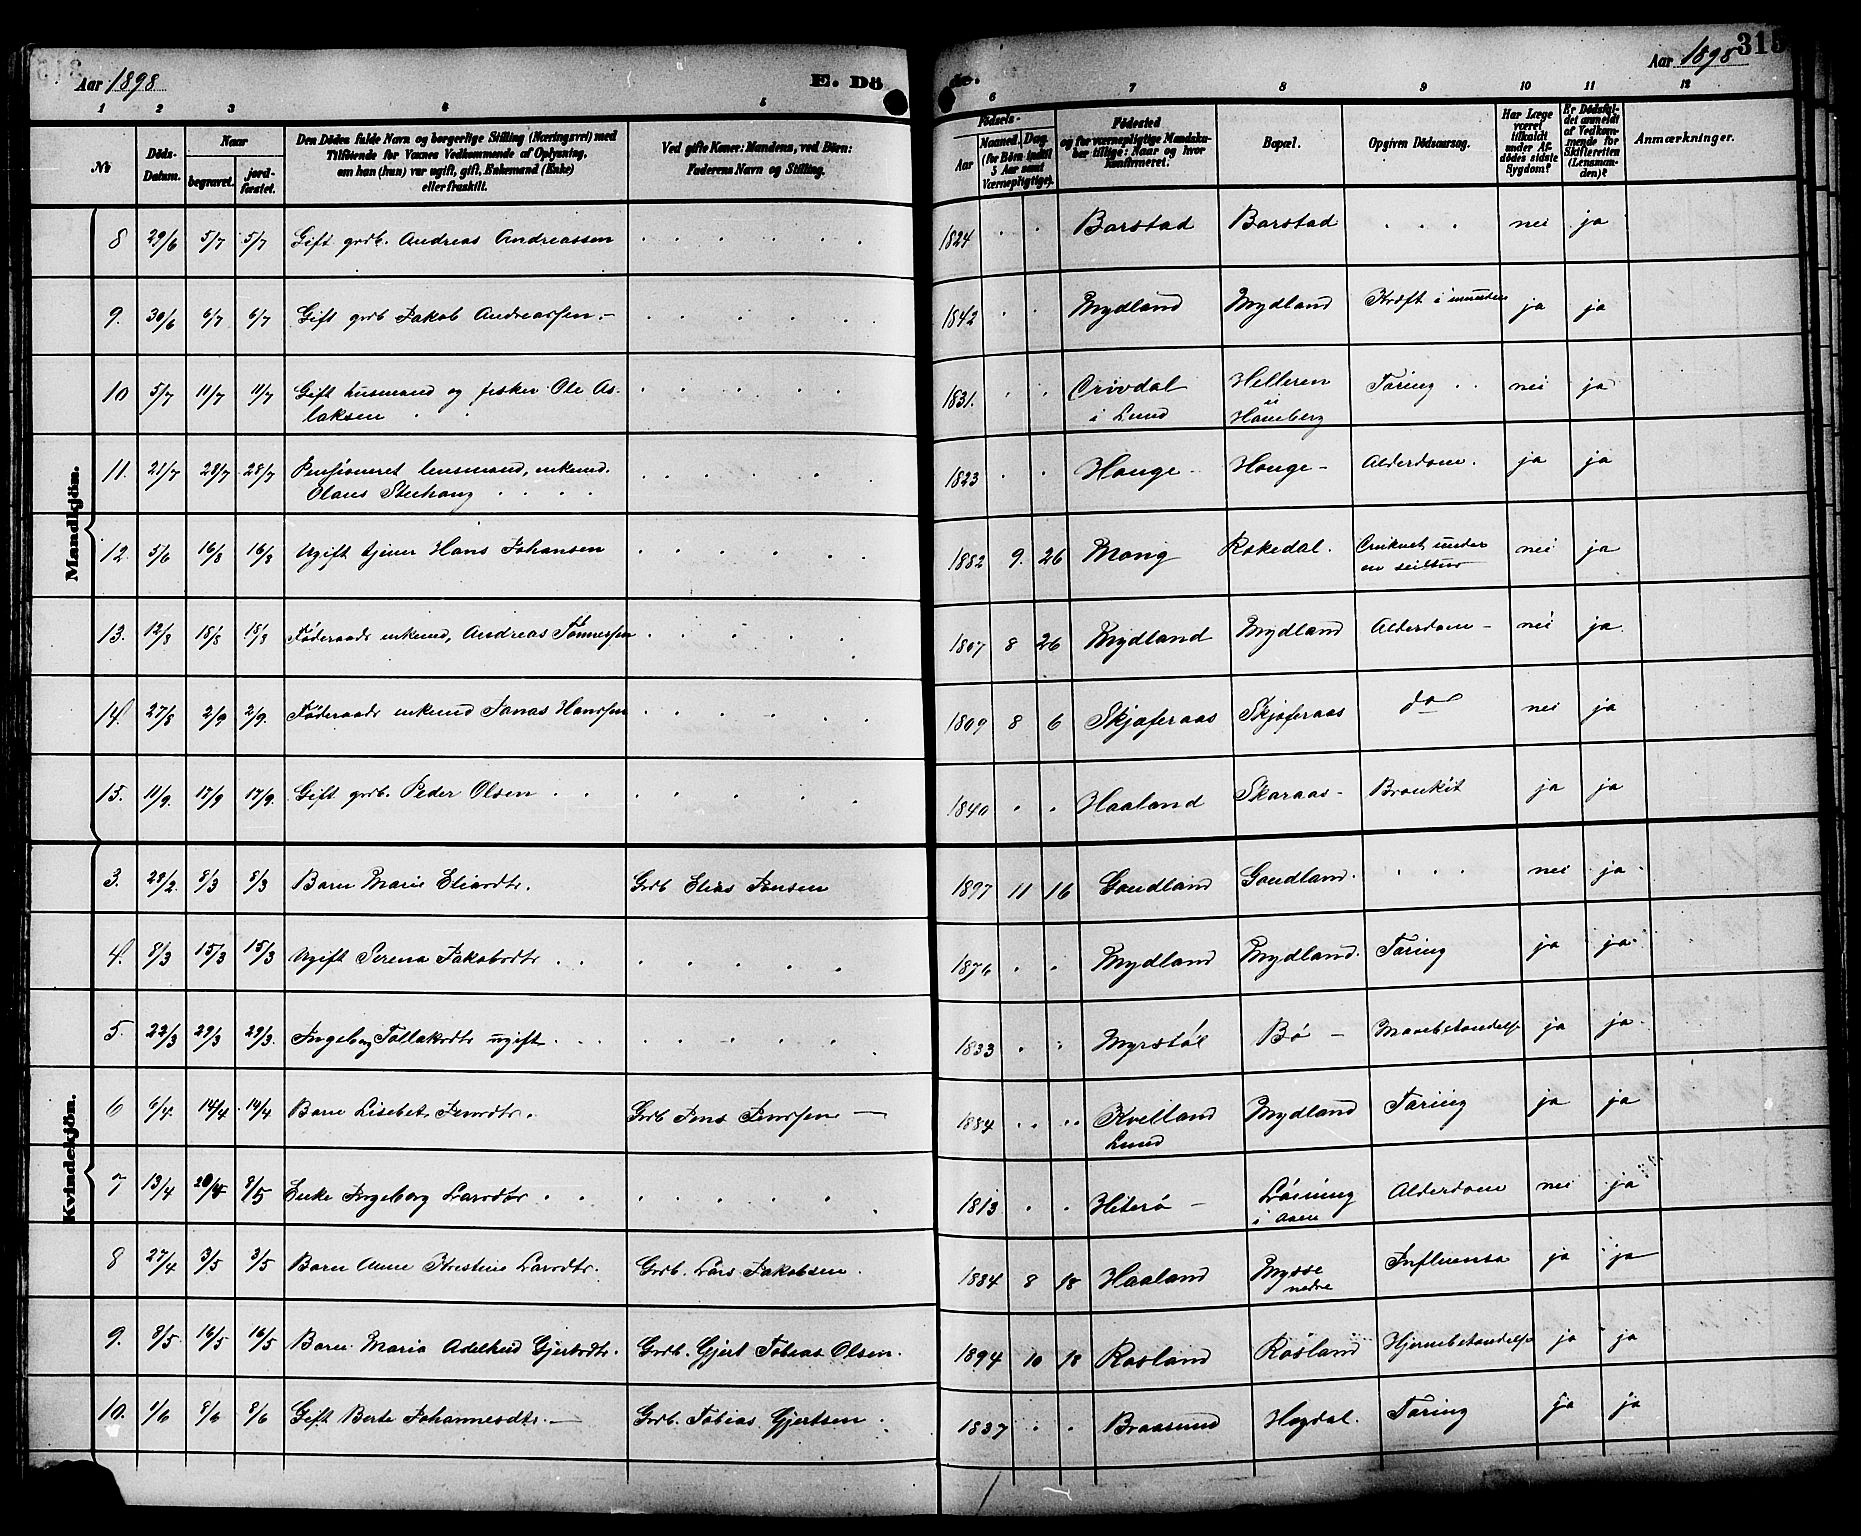 Aar 1898
E. Dö
de.
Aar 1898
315
1 2 3 4 5 6 7 8 9 10 11 12
№
Döds-Datum.
Naar
begravet.
jord-fæstet.
Den Dödes fulde Navn og borgerlige Stilling (Næringsvei) med
Tilföiende for Voxnes Vedkommende af Oplysning,
om han (hun) var ugift, gift, Enkemand (Enke)
eller fraskilt.
Ved gifte Koner: Mandens, ved Börn:
Faderens Navn og Stilling.
Födsels-
Aar
Maaned. Dag.
(for Börn indtil
5 Aar samt
Værnepligtige).
Födested
og for værnepligtige Mandska-
ber tillige: Naar og hvor
konfirmeret.
Bopæl.
Opgiven Dödsaarsag.
Har Læge
været
tilkaldt
under Af-
dödes sidste
Sygdom?
Er Dödsfal-
det anmeldt
af Vedkom-
mende for
Skifteretten
(Lensman-
den)?
Anmærkninger.
Mandkjön.
8 29/6 5/7 5/7 Gift grdb. Andreas Andreassen . . . . . 1824 . . Barstad Barstad . . . nei ja
9. 30/6 6/7 6/7 Gift grdb Jakob Andreassen.- . . . . . 1842 . . Mydland Mydland Kræft i munden ja ja
10 5/7 11/7 11/7 Gift husmand og fisker Ole As- . . . . . 1831. . . Helleren Tæring . . nei ja
laksen . . i Lund Haneberg
11. 21/7 28/7 28/7 Pensioneret lensmand, enkemd. . . . . . 1823 . . Hauge - Hauge - Alderdom. ja ja
Olaus Stenhaug . . . .
12. 5/6 16/8 16/8 Ugift tjener Hans Johansen . . . . . 1882 9. 26 Mong Rekedal. under nei ja
en seiltur
13. 12/8 18/8 18/8 Föderaads enkemd, Andreas Tönnessen . . . . . 1807 8 26 Mydland Mydland Alderdom - nei ja
14. 27/8 2/9 2/9. Föderaads enkemd Jonas Hanssen . . . . . 1809 8 6 Skjoferaas Skjoferaas do nei ja
15. 11/9. 17/9 17/9. Gift grdb. Peder Olsen . . . . . . . 1840 . . Haaland Skaraas - Bronkit ja ja
Kvindekjön.
3. 28/2. 8/3 8/3 Barn Marie Eliasdtr. Grdb Elias Jensen 1897 11 16 Goudland Goudland. . . . nei ja
4. 8/3 15/3 15/3 Ugift Serena Jakobsdtr . . . . . . . 1876 . . Mydland Mydland. Tæring ja ja
5. 22/3 29/3 29/3. Ingeborg Tollaksdtr ugift . . . . . . . . 1833 . . Myrstöl Bö - Mavebetændelse ja ja
6 6/4. 14/4 14/4 Barn Lisebet Jensdtr. Grdb Jens Jenssen - 1884 . . . . Kvelland Mydland Tæring ja ja
Lund
7 13/4 20/4 8/5 Enke Ingeborg Larsdtr . . . . . . . . 1813 . . Hiterö - Lösning Alderdom nei ja
i Aaen
8 27/4 3/5 3/5 Barn Anne Kristine Larsdtr. Grdb. Lars Jakobsen. 1884 8 18 Haaland Mysse Influensa ja ja
nedre
9. 8/5 16/5 16/5 Barn Maria Adelheid Gjertsdtr. Grdb. Gjert Tobias Olsen. 1894 10 18 Rosland Rosland Hjernebetændelse ja ja
10. 1/6 8/6 8/6 Gift Berte Johannesdtr. - Grdb. Tobias Gjertsen. 1837 . . Braasund Hogdal. Tæring ja ja